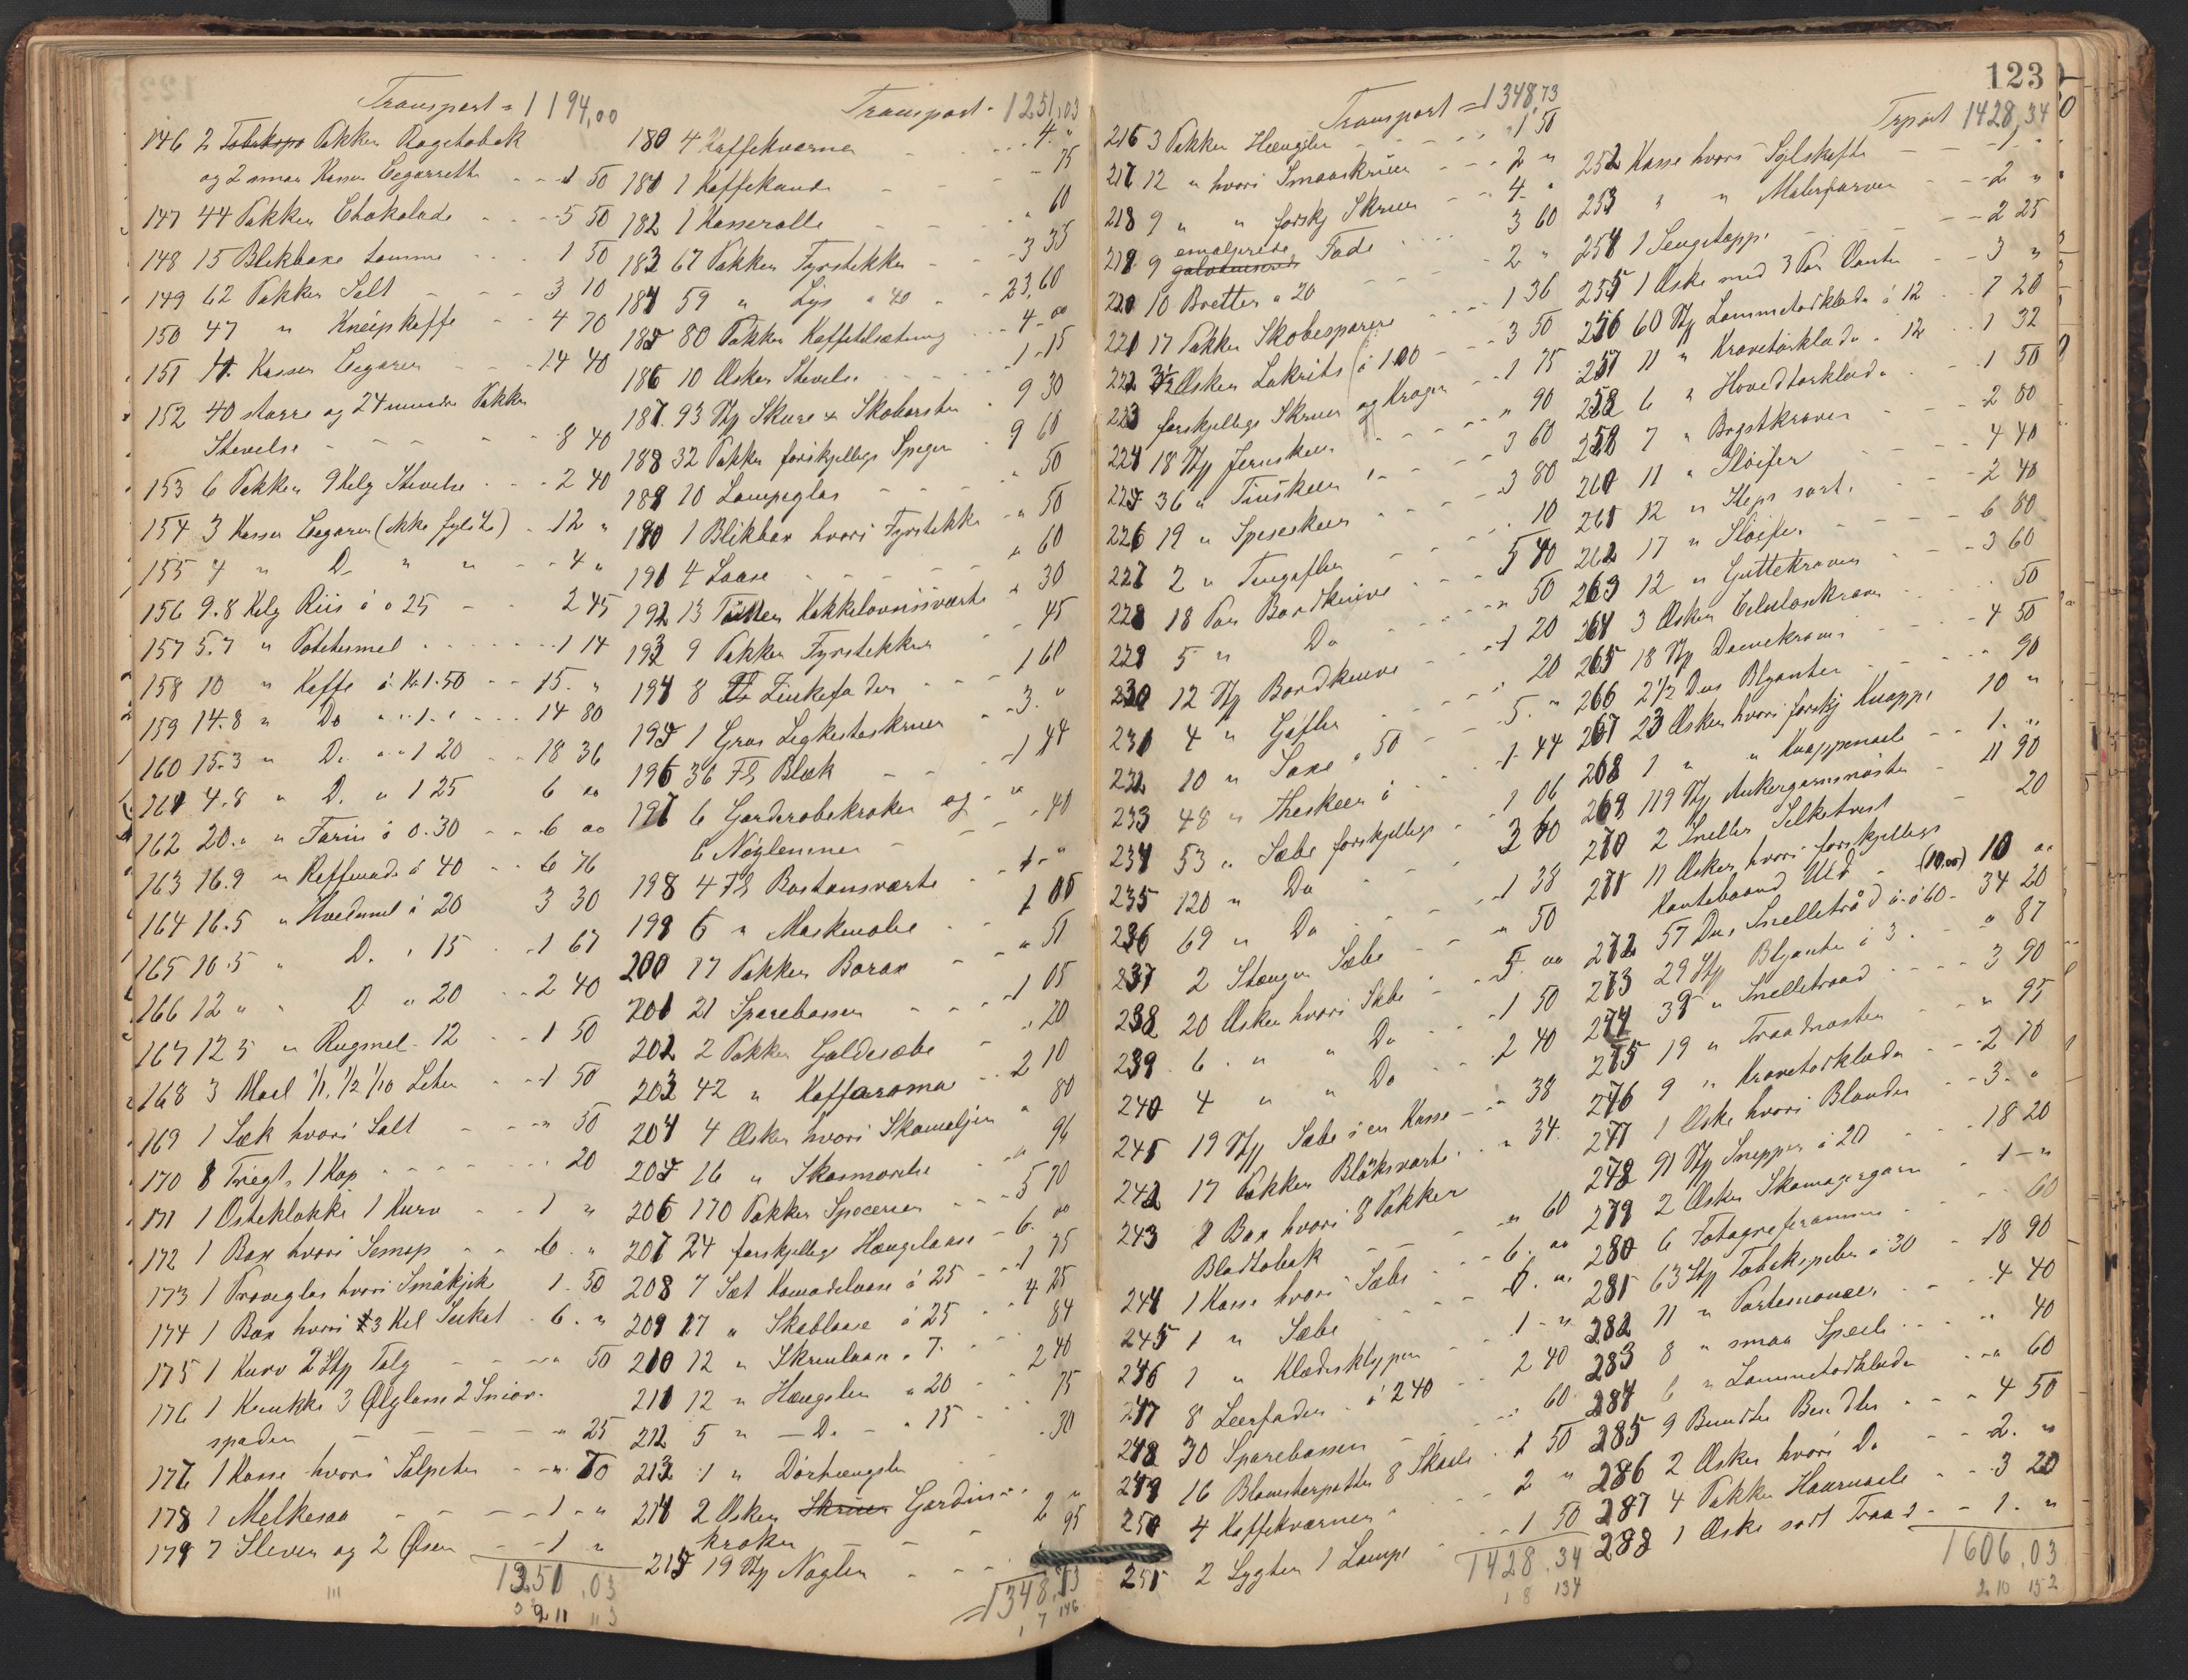 123
Transport = 1194,00
146 2 Pakker Røgetobak
og 2 smaa Kasser Cegarretter - - 1 50
147 44 Pakker Chokolade - - 5 50
148 15 Blikboxe tomme - - 1 50
149 62 Pakker Salt - - - 3 10
150 47 " Kneipkaffe - - 4 70
151 Kasser Cegarer - - - 14 40
152 40 større og 24 mindre Pakker
Stivelse - - - - 8 40
153 6 Pakker 9 Kelg Stivelse - - - 2 40
154 3 Kasser Cegarer (ikke fylte) - 12 "
155 4 " Do " " - - 4 "
156 9.8 Kelg Riis á 0 25 - - 2 45
157 5.7 " Potetesmel - - - 1 14
158 10 " Kaffe á Kr 1.50 - - 15. "
159 14.8 " Do " " 1. " - - - 14 80
160 15.3 " Do " " 1 20 - - 18 36
161 4.8 " D. " 1 25 6 00
162 20. " " Farin á 0.30 - - 6 00
163 16.9 " Raffenade á 40 - - 6 76
164 16.5 " Hvedemel á 20 3 30
165 16.5 " D. " 15 - - 1 67
166 12 " " D " 20 - - 2 40
167 12 5 " Rugmel - 12 - - 1 50
168 3 Maal 1/1, 1/2 1/10 Leter - - 1 50
169 1 Sæk hvori Salt - - - " 50
170 8 Tregt, 1 Kop - - - - - 20
171 1 Osteklokke 1 Kurv - - 1 "
172 1 Box hvori Sennep - - 6. "
173 1 Prøveglas hvori Småkjik 1. 50
174 1 Box hvori 3 Kel Sukat - 6. "
175 1 Kurv 2 Stp Talg - - - " 50
176 1 Krukke 3 Ølglass 2 Smør-
spader - - - - " 25
177 1 Kasse hvori Salpeter - - " 70
178 1 Melkespa - - - - 1 - "
179 7 Slever og 2 Øser - - 1 "
1251.03
Transport - 1251,03
180 4 Kaffekværner - - - - 4. "
181 1 Kaffekande - - - 75
182 1 Kasserolle - - - " 60
183 67 Pakker Fyrstikker - - 3 35
184 59 " Lys " 40 - - 23,60
185 80 Pakker Kaffetilsætning - - 4 - 00
186 10 Æsker Stivelse - - - 1 - 15
187. 93 Stp Skure & Skobørster - 9 30
188 32 Pakker forskjellige Spiger - 9 60
189 10 Lampeglas - - - " 50
190 1 Blikbox hvori Fyrstikker - " 50
191 4 Laase - - - - " 60
192 13 Kakkelovnssværte " 30
193 9 Pakker Fyrstikker - - 45
194 8 Zinkefader - - - 1 60
195 1 Gros Ligkisteskruer - - 3. "
196 36 Fl Blæk - - - 1 44
197 6 Garderobekroker og - "
6 Nøglemmer - - - 40
198 4 Fl Bostonsværte - - 1 - "
199 6 " Maskinolie - - 1 00
200 17 Pakker Borax - - " 51
201 21 Sparebøsser - - - 1 05
202 2 Pakker Galdesæbe - " 20
203 42 " Kaffaroma - - 2 10
204 4 Æsker hvori Skomaljer " 80
205 16 " Skosmørelse - " 96
206 170 Pakker Specerier - - 5 70
207 24 forskjellige Hængelaase - 6. 00
208 7 Sæt Komodelaase á 25 - - 1 75
209 17 " Skablaase á 25 - - 4 25
210 12 " Skrinlaase " 7. - - 84
211 12 " Hængsler " 20 - - 2 40
212 5 " - D. - " 15 - - 75
213 1 " Dørhængsler - - .30
214 2 Æsker Skruer Gardin - - 2 "
kroker
215 19 Stp Nøgler - - - 95
= 1348.73
Transport = 1348,73
216 3 Pakker Hængsler - - - 1 50
217 12 " hvori Smaaskruer - - - 2 "
218 9 " " forskj Skruer - - 4. "
219 9 emaljerede galvaniserede Fade - - 3 60
220 10 Bretter " 20 - - 2 "
221 17 Pakker Skobesparere - - 1 36
222 3½ Æsker Lakrits á 100 - - 3 50
223 forskjellige Skruer og Kroger - - 1 75
224 18 Stp Jernskeer - - - " 90
225 36 " Tinskeer - - - 3 60
226 19 " Spiseskeer - - - 3 80
227 2 " Tengafler - - - 10
228 18 Par Bordknive - - - 5 40
229 5 " Do - - - " 50
230 12 Stp Bordknive - - - 1 20
231 4 " Gafler - - - 20
232 10 " Saxe " 50 - - 5. "
233 48 " Theskeer á - - 1 44
234 53 " Sæbe forskjellige - 1 06
235 120 " Do - - - 3 60
236 69 " Do - - - 1 38
237 2 Stænger Sæbe - - " 50
238 20 Æsker hvori Sæbe - - 5 00
239 6. " " Do - - 1 50
240 4 " " Do - - 2 40
241 19 Stp Sæbe i en Kasse - - 38
242 17 Pakker Bløksværte. - " 34.
243 1 Box hvori 8 Pakker
Bladtobak - - - " 60
244 1 Kasse hvori Sæbe - - - 6. 00
245 1 " Sæbe - - - 6. "
246 1 " Klædesklyper - - 1 - "
247 8 Leerfader - á 2 40 - - 2 40
248 30 Sparebøsser - - - 60
249 16 Blomsterpotter 8 Skaale - 1 50
250 4 Kaffekværner - - - 2 "
251 2 Lygter 1 Lampe - - - 1 50
1428.34
Trport 1428,34
252 Kasse hvori Sylskafter - - - 1 - "
253 " " Malerfarver - - - 2 "
254 1 Sengeteppe - - - 2 25
255 1 Æske med 3 Par Vanter - - 3 "
256 60 Stp Lommetørklæder á 12 - - 7 20
257 11 " Kravetørklæder " 12 - - 1 32
258 6 " Hovedtørklæder - - 1 50
259 7 " Brystkraver - - - 2 80
260 11 " Sløifer - - - 4 40
261 12 " Slips sort. - - - 2 40
262 17 " Sløifer - - - 6 80
263 12 " Guttekraver - - - 3 60
264 3 Æsker Celuloskraver - - 50
265 18 Stp Damekraver - - - 4 50
266 2½ Dus Blyanter - - - " 90
267 23 Æsker hvori forskj Knapper 10 "
268 1 " " Knappenaale - - 1. "
269 119 Stp Ankergarnsnøster - 11 90
270 2 Sneller Silketvist - 20
271 11 Æsker hvori forskjellige
Kantebaand Uld - (10.00) 10 00
272 57 Dus Snelletråd á - 60 - 34 20
273 29 Stp Blyanter á 3. - " 87
274 39 " Snelletraad - - - 3 90
275 19 " Traadnøster - - " 95
276 9 " Kravetørklæder - - 2 70
277 1 Æske hvori Blonder - - 3. "
278 91 Stp Snepper á 20 - - 18 20
279 2 Æsker Skomagergarn - 1 - "
280 6 Fotografirammer - - - 60
281 63 Stp Tobakspiber á 30 - 18 90
282 11 " Portemonæer - - - 4 40
283 8 " smaa Speile - - " 40
284 6 " Lommetørklæder - - " 60
285 9 Bundter Bendler - - 4 50
286 2 Æsker hvori Do - - 2. "
287 4 Pakker Haarnaale - - 3 20
288 1 Æske sort Traad - - 1. "
1606.03